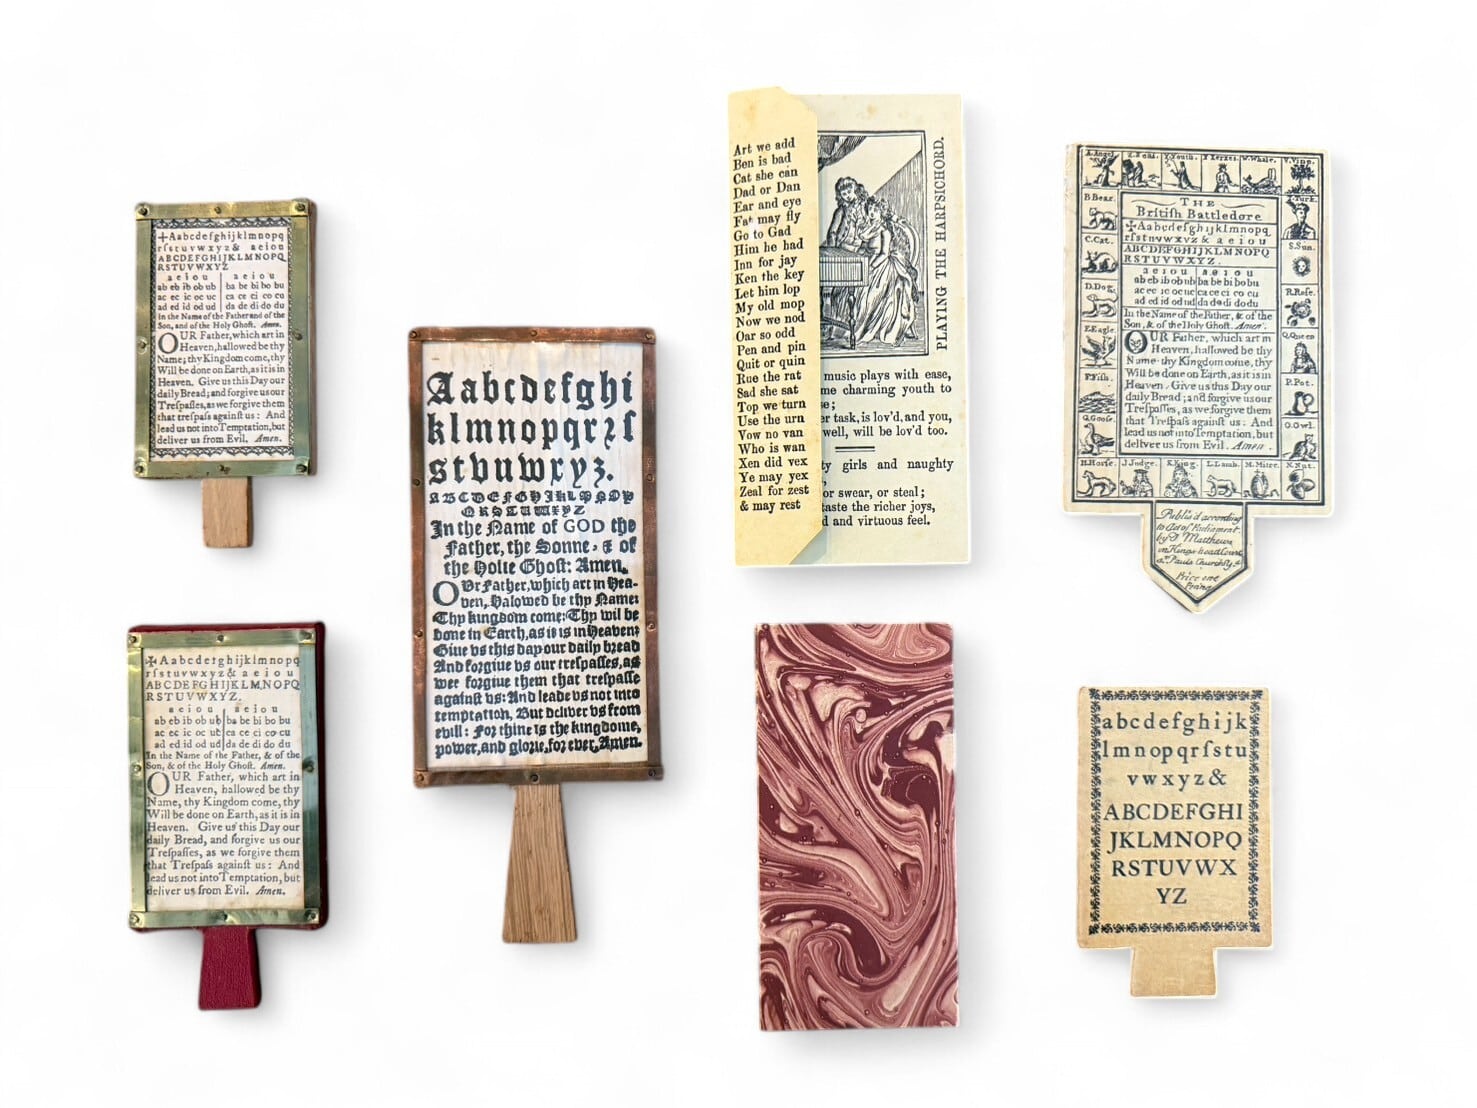 +Aabcdefghijklmnopq
rſstuvwxyz& aeiou
ABCDEFGHIJKLMNOPQ
RSTUVWXYZ
a e i o u | a e i o u
ab eb ib ob ub | ba be bi bo bu
ac ec ic oc uc | ca ce ci co cu
ad ed id od ud | da de di do du
In the Name of the Father and of the
Son, and of the Holy Ghoſt. Amen.
OUR Father, which art in
Heaven, hallowed be thy
Name; thy Kingdom come, thy
Will be done on Earth, as it is in
Heaven. Give us this Day our
daily Bread; and forgive us our
Treſpaſſes, as we forgive them
that treſpaſs againſt us: And
lead us not into Temptation, but
deliver us from Evil. Amen.
✠Aabcdefghijklmnopq
rſstuvwxyz& aeiou
ABCDEFGHIJKLMNOPQ
RSTUVWXYZ.
a e i o u | a e i o u
ab eb ib ob ub | ba be bi bo bu
ac ec ic oc uc | ca ce ci co cu
ad ed id od ud | da de di do du
In the Name of the Father, & of the
Son, & of the Holy Ghoſt. Amen.
OUR Father, which art in
Heaven, hallowed be thy
Name, thy Kingdom come, thy
Will be done on Earth, as it is in
Heaven. Give us this Day our
daily Bread, and forgive us our
Treſpaſſes, as we forgive them
that Treſpaſs againſt us: And
lead us not into Temptation, but
deliver us from Evil. Amen.
Aabcdefghi
klmnopqrꝛſ
stvuwxyz.
ABCDEFGHIJKLMNOP
QRSTUWXYZ
In the Name of GOD the
Father, the Sonne, & of
the Holie Ghoſt: Amen.
OUr Father, which art in Hea-
ven, Halowed be thy Name:
Thy kingdom come: Thy wil be
done in Earth, as it is in Heaven:
Giue vs this day our daily bread
And forgiue vs our treſpaſſes, as
wee forgiue them that treſpaſſe
againſt vs: And leade vs not into
temptation, But deliver vs from
evill: For thine is the kingdome,
power, and glorie, for ever, Amen.
Art we add
Ben is bad
Cat she can
Dad or Dan
Ear and eye
Fat may fly
Go to Gad
Him he had
Inn for jay
Ken the key
Let him lop
My old mop
Now we nod
Oar so odd
Pen and pin
Quit or quin
Rue the rat
Sad she sat
Top we turn
Use the urn
Vow no van
Who is wan
Xen did vex
Ye may yex
Zeal for zest
& may rest
PLAYING THE HARPSICHORD.
music plays with ease,
me charming youth to
e;
er task, is lov'd, and you,
well, will be lov'd too.
ty girls and naughty
or swear, or steal;
taste the richer joys,
d and virtuous feel.
A.Angel. Y.Youth. X Xerxes. W.Whale. V.Vine.
B.Bear.
C.Cat.
D.Dog.
E.Eagle.
F.Fiſh.
G.Gooſe.
H.Horſe. J.Judge. K.King. L.Lamb. M.Mitre. N.Nut.
T.Turk.
S.Sun.
R.Roſe.
Q.Queen
P.Pot.
O.Owl.
THE
Britiſh Battledore
✠Aabcdefghijklmnopq
rſstuvwxyz & a e i o u
ABCDEFGHIJKLMNOPQ
RSTUVWXYZ.
a e i o u | a e i o u
ab eb ib ob ub ba be bi bo bu
ac ec ic oc uc ca ce ci co cu
ad ed id od ud da de di do du
In the Name of the Father, & of the
Son, & of the Holy Ghoſt. Amen.
OUR Father, which art in
Heaven, hallowed be thy
Name. thy Kingdom come, thy
Will be done on Earth, as it is in
Heaven. Give us this Day our
daily Bread; and forgive us our
Treſpaſſes, as we forgive them
that Treſpaſs againſt us: And
lead us not into Temptation, but
deliver us from Evil. Amen.
Publiſ'd according
to Act of Parliament.
by J Matthews
in Kings-head Court
St Pauls Churchyd
Price one
Penny
abcdefghijk
lmnopqrſstu
vwxyz&
ABCDEFGHI
JKLMNOPQ
RSTUVWX
YZ